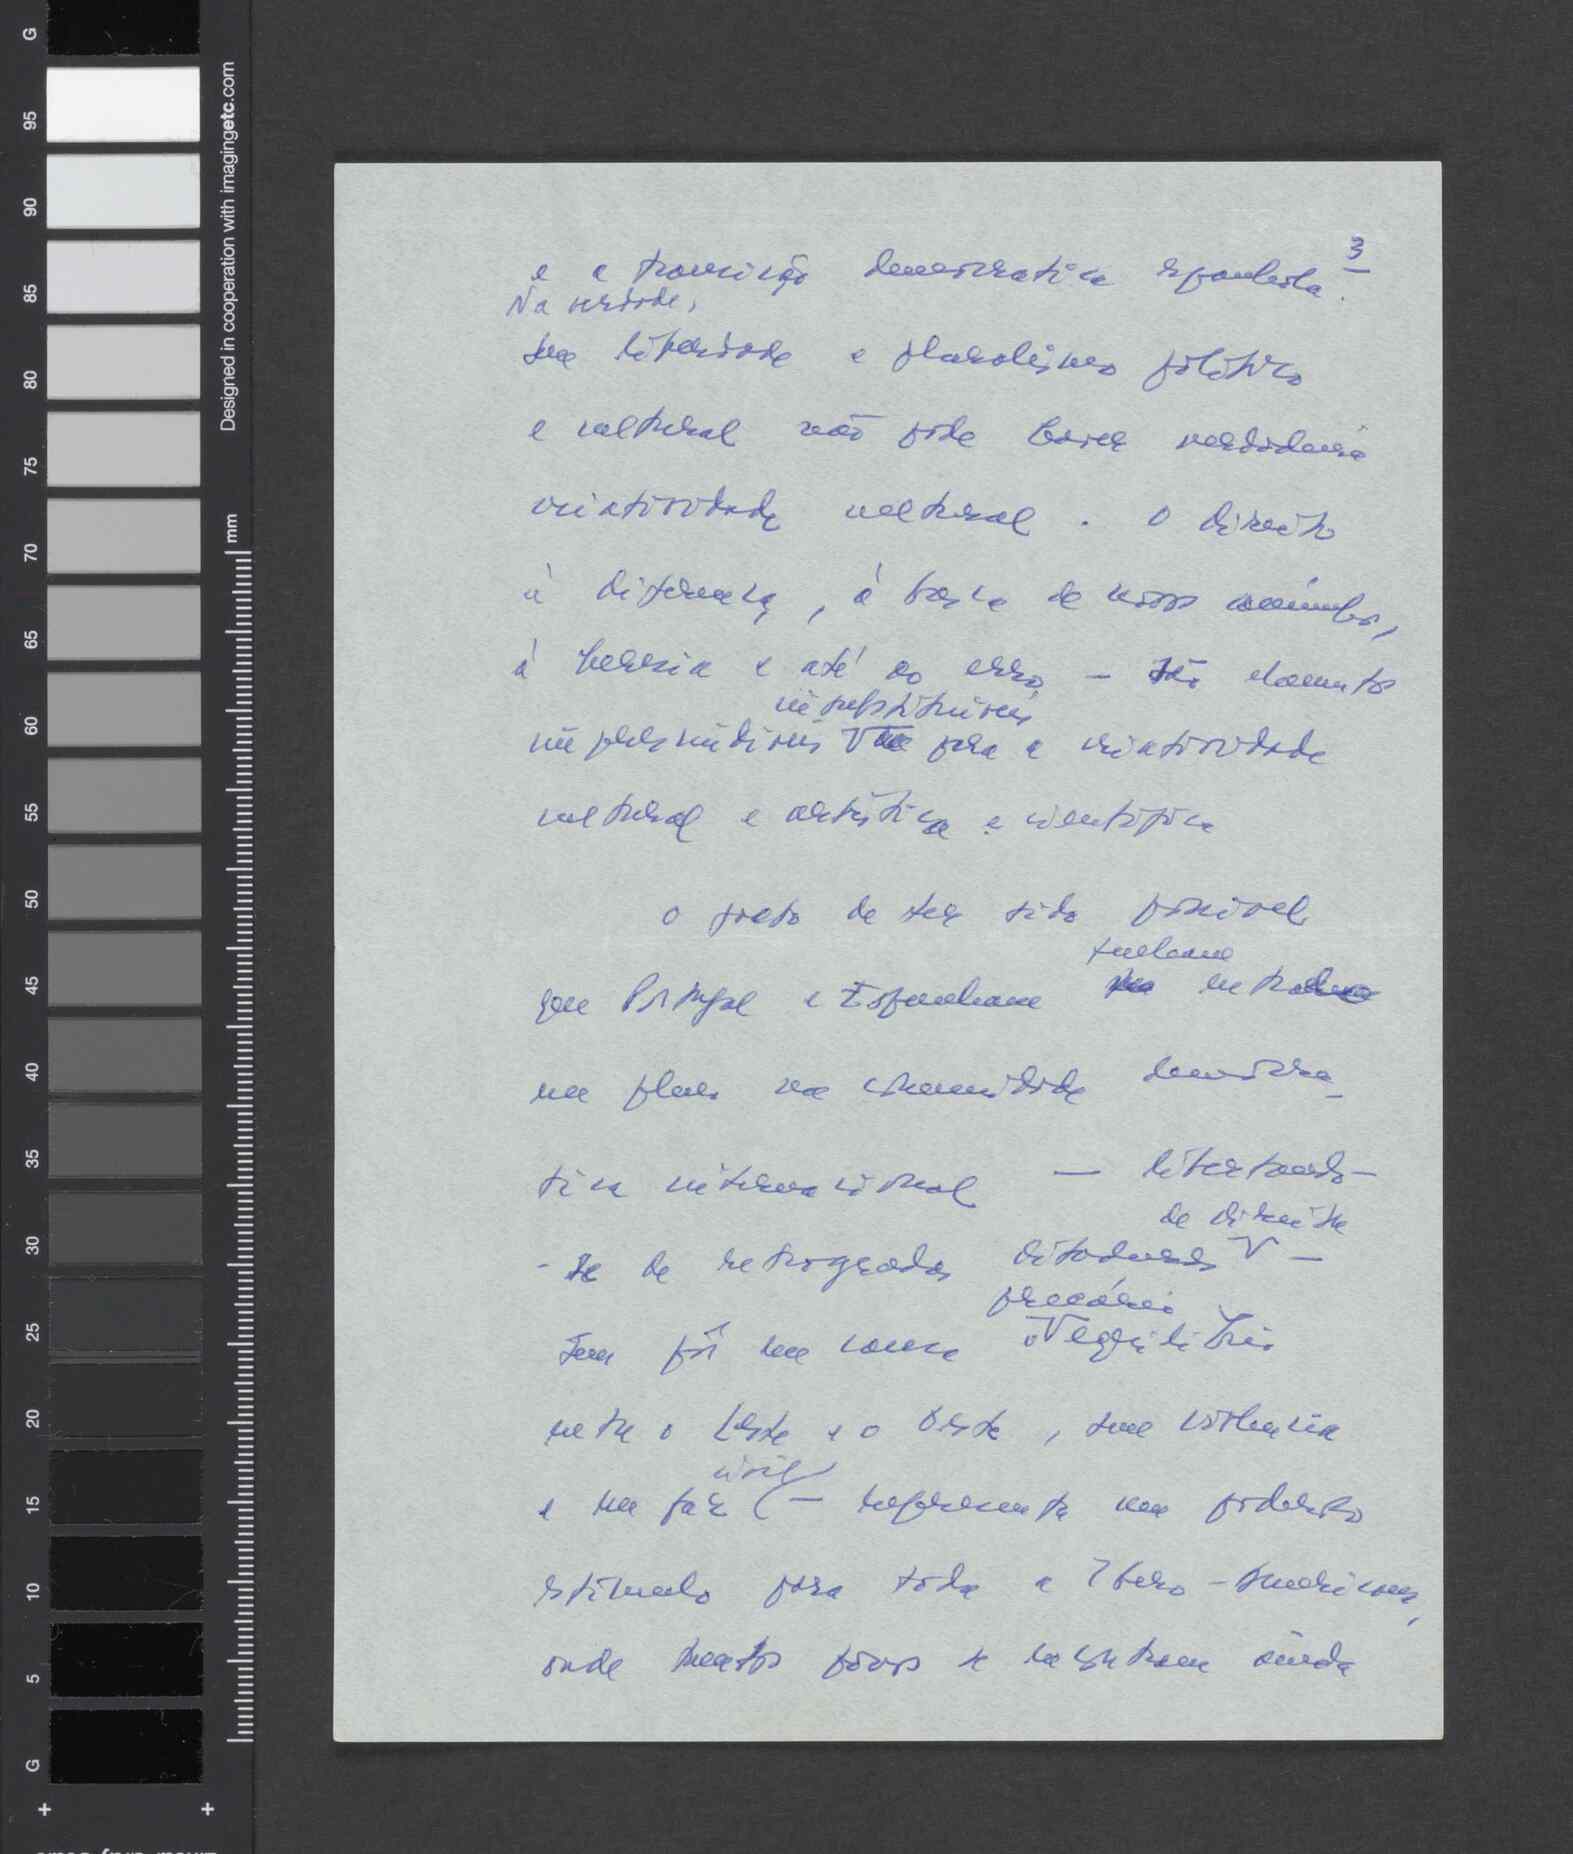 G
95
90
85
80
75
70
65
60
55
50
45
40
35
30
25
20
15
10
5
G
Designed in cooperation with imagingetc.com
mm
3
e a transição democratica espanhola.
Na verdade,
sem liberdade e pluralismo político
e cultural não pode haver verdadeira
criatividade cultural. O direito
à diferença, à busca de novos caminhos,
à heresia e até ao erro – são elementos
insubstituíveis
imprescindíveis para a criatividade
cultural e artística e cientifica
O facto de ter sido possivel
que Portugal e Espanha
em pleno na comunidade democra-
tica internacional — libertando-
de direita
-se de retrogradas ditaduras —
precário
sem pôr em causa o equilibrio
entre o Leste e o Oeste, sem violencia
civil
e em paz — representa um poderoso
estimulo para toda a Ibero-America,
onde tantos povos se encontram ainda